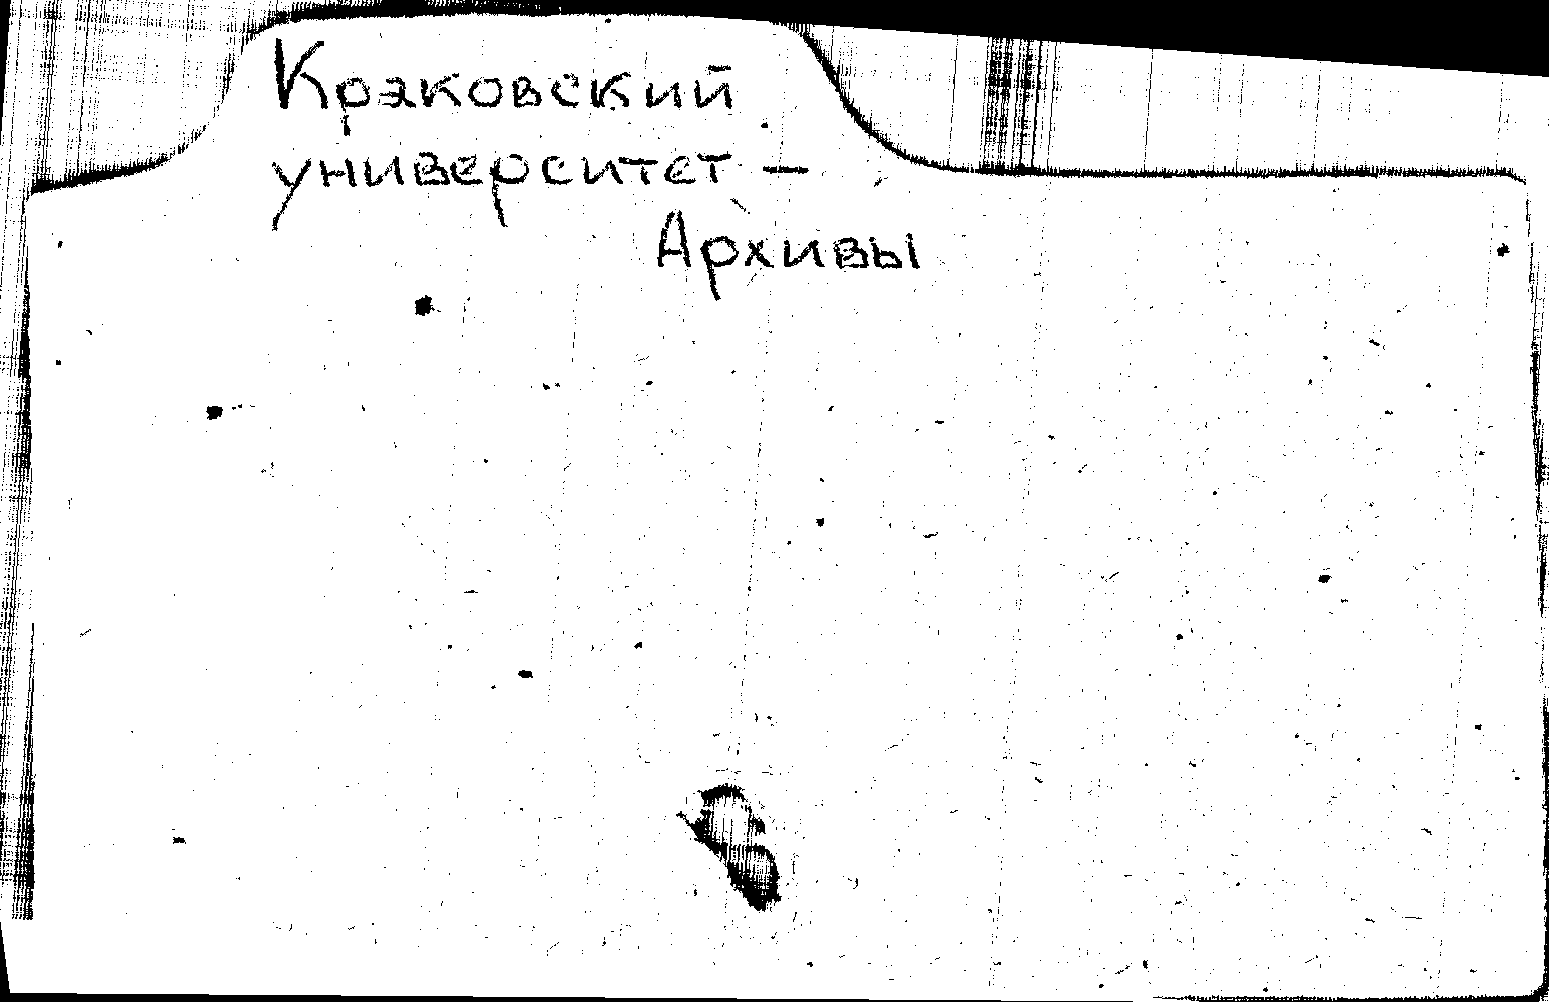 Краковский
университет —
Архивы